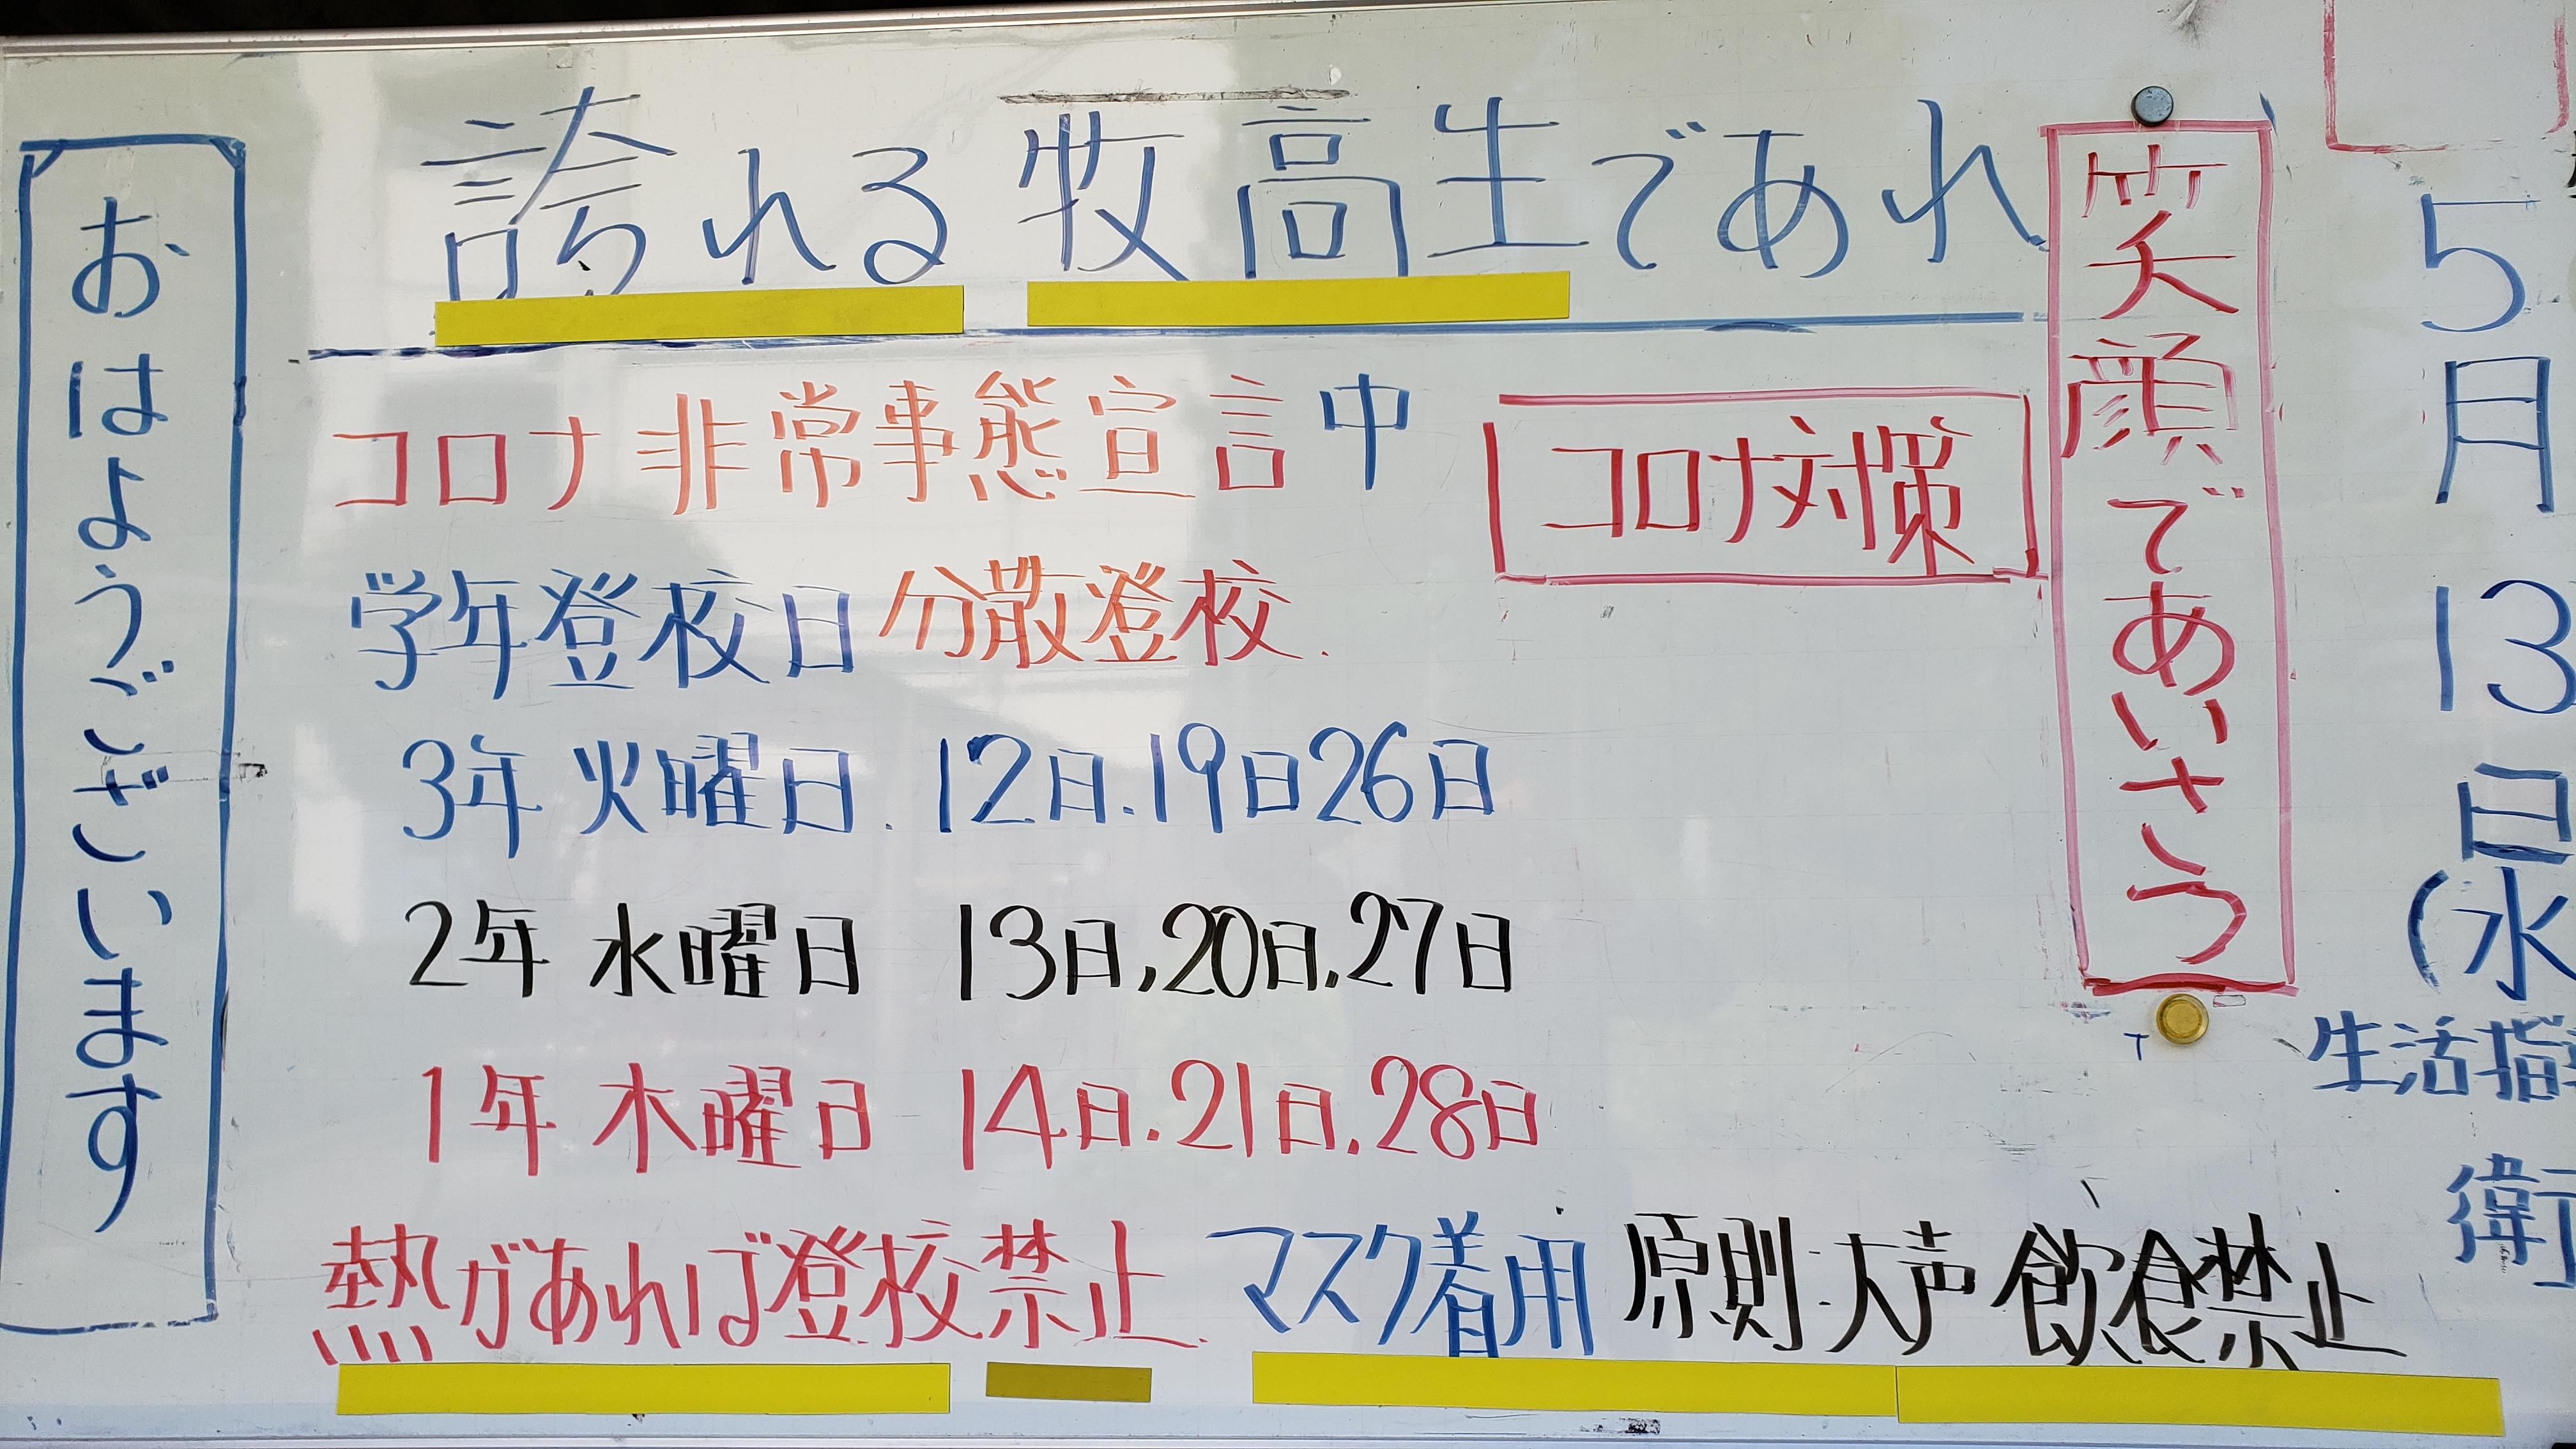 5月13日(水
生活指
衛
笑顔であいさつ
誇れる牧高生であれ
コロナ非常事態宣言中
コロナ対策
学年登校日 分散登校.
3年 火曜日. 12日.19日26日
2年 水曜日 13日,20日,27日
1年 木曜日 14日.21日.28日
熱があれば登校禁止. マスク着用 原則.大声 飲食禁止
おはようございます